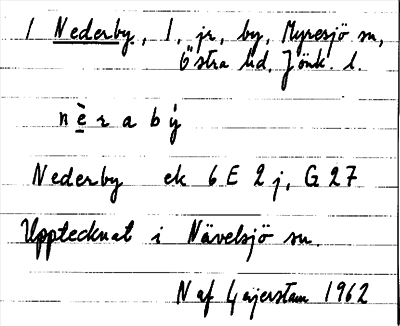 1 Nederby, 1, jr, by, Myresjö sn,
Östra hd, Jönk. l.
nèrabý
Nederby ek 6E 2j, G27
Upptecknat i Nävelsjö sn.
N af Geijerstam 1962